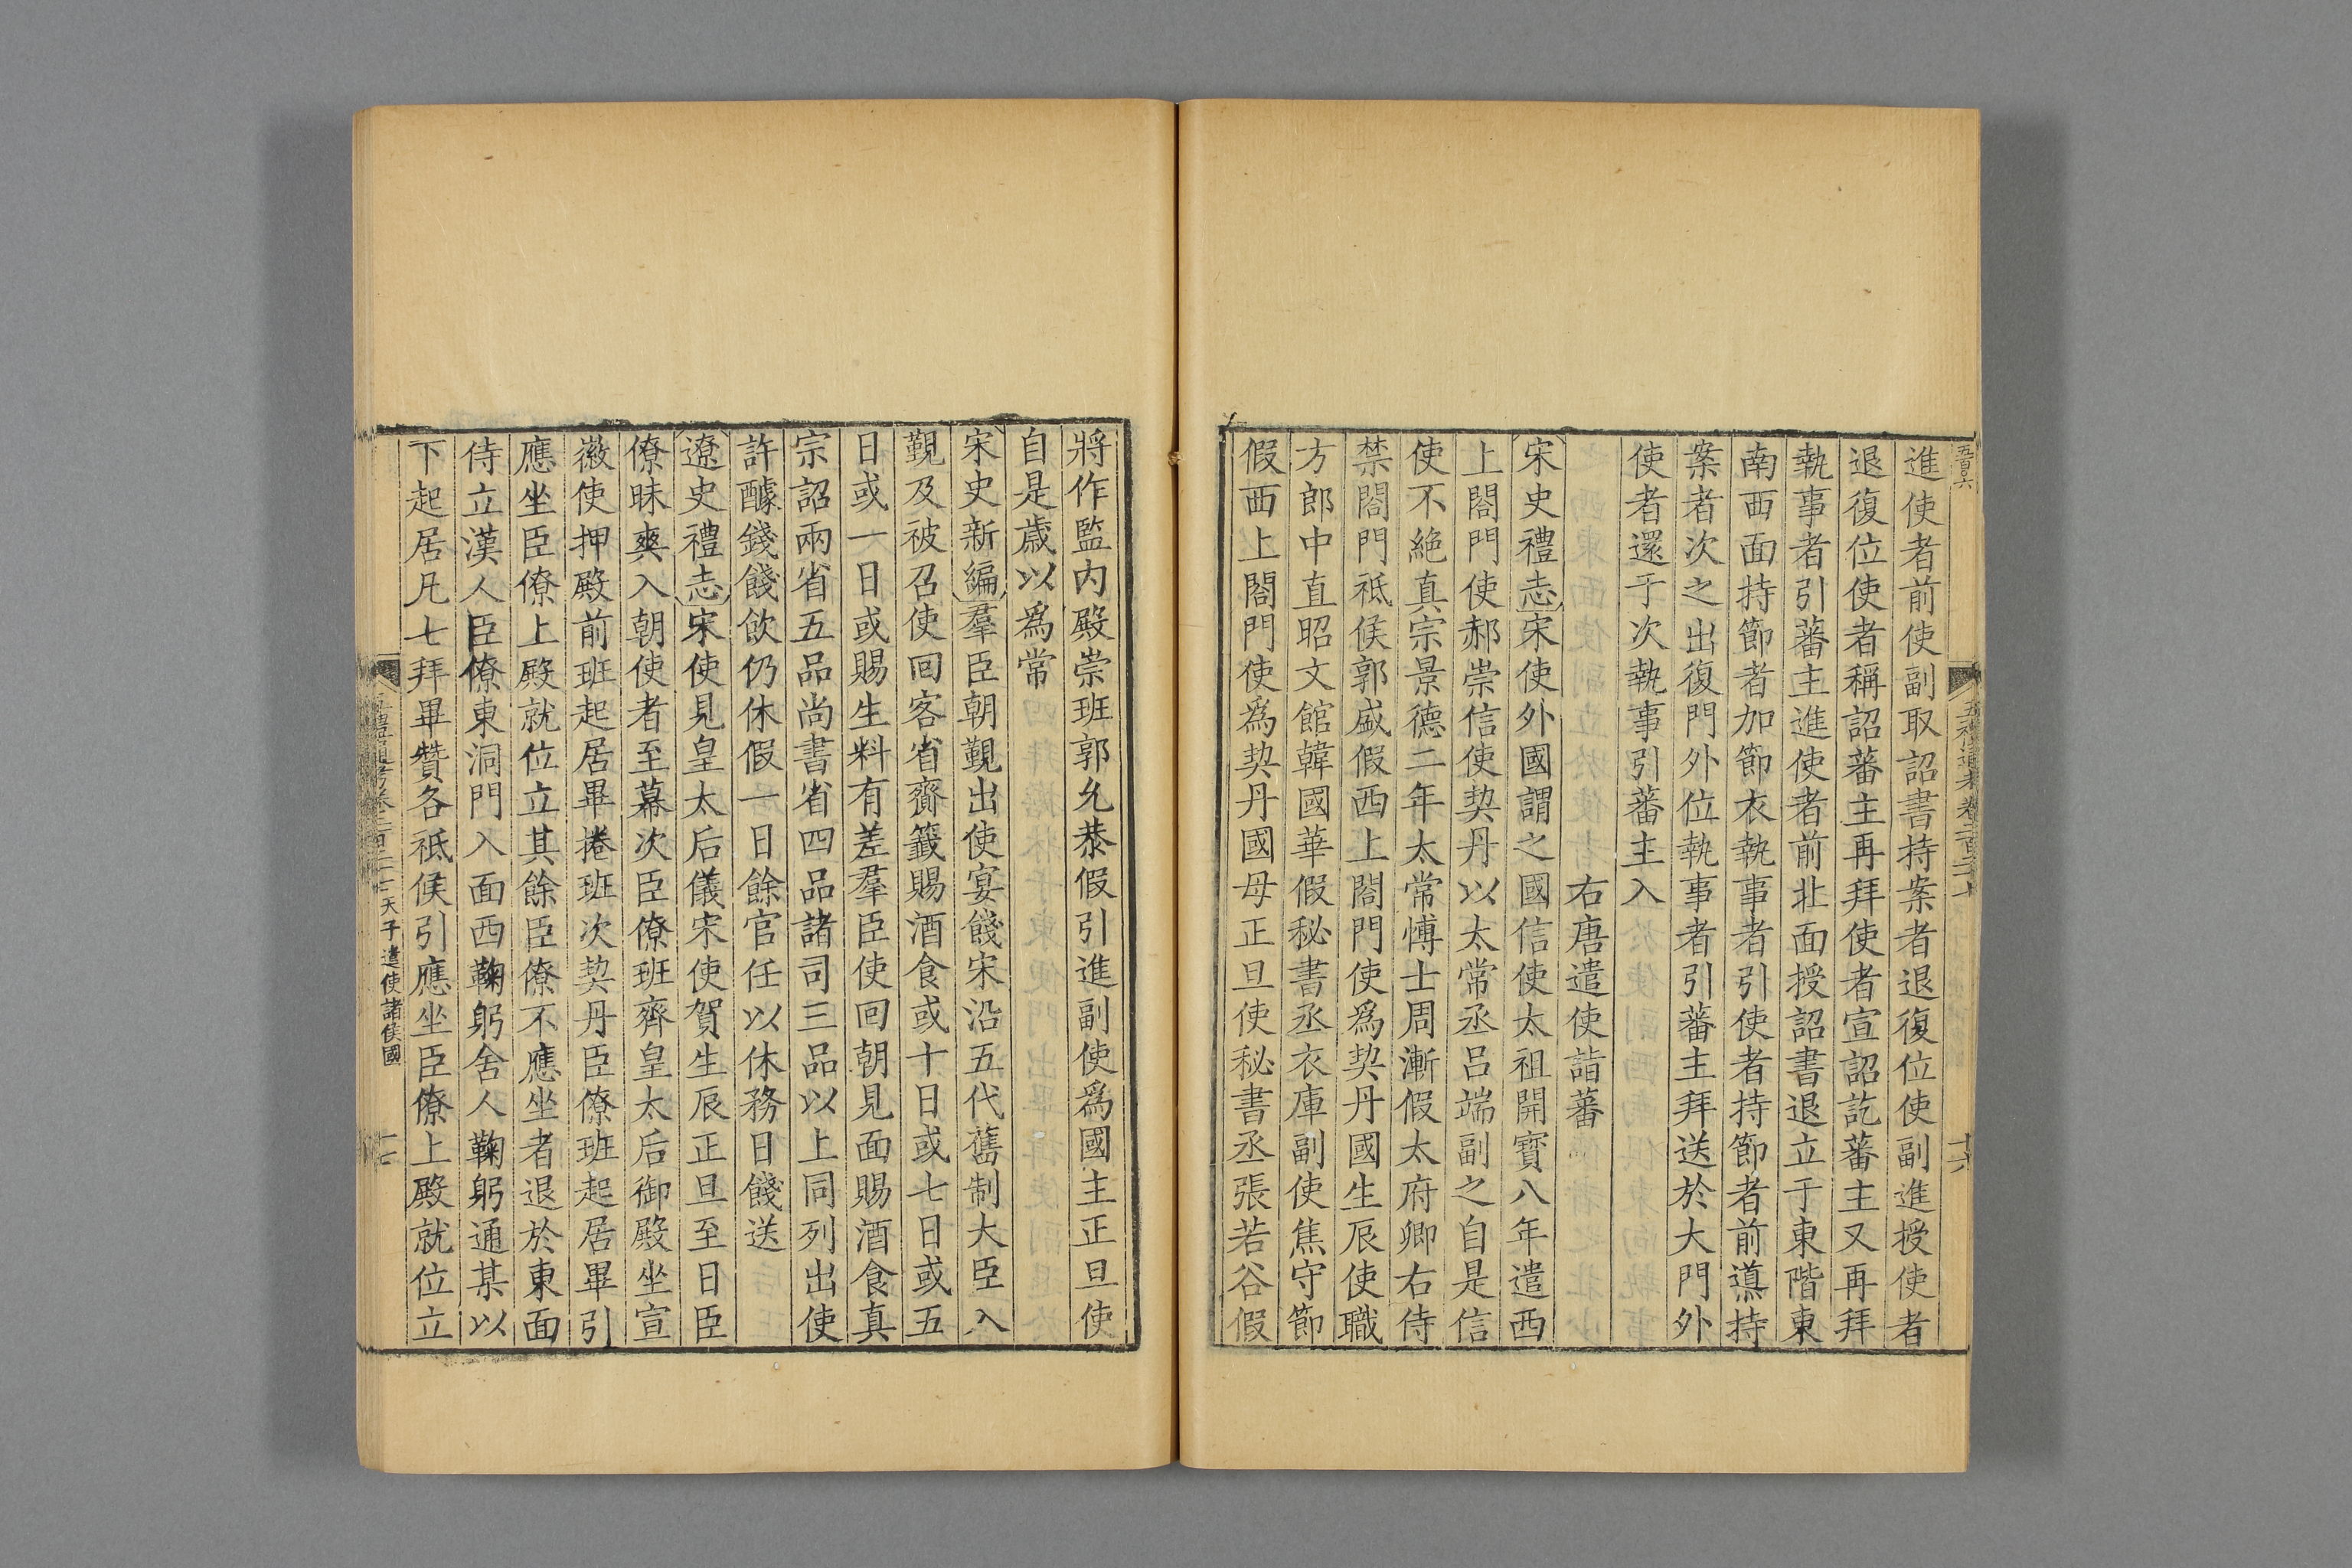 進使者前使副取詔書持案者退復位使副進授使者
退復位使者稱詔蕃主再拜使者宣詔訖蕃主又再拜
執事者引蕃主進使者前北面授詔書退立于東階東
南西面持節者加節衣執事者引使者持節者前導持
案者次之出復門外位執事者引蕃主拜送於大門外
使者還于次執事引蕃主入
右唐遣使詣蕃
宋史禮志宋使外國謂之國信使太祖開寶八年遣西
上閤門使郝崇信使契丹以太常丞呂端副之自是信
使不絶真宗景德二年太常愽士周漸假太府卿右侍
禁閤門祗候郭盛假西上閤門使爲契丹國生辰使職
方郎中直昭文館韓國華假秘書丞衣庫副使焦守節
假西上閤門使爲契丹國母正旦使秘書丞張若谷假
將作監内殿崇班郭允恭假引進副使爲國主正旦使
自是歲以爲常
宋史新編羣臣朝覲出使宴餞宋沿五代舊制大臣入
覲及被召使回客省齎籖賜酒食或十日或七日或五
日或一日或賜生料有差羣臣使回朝見面賜酒食真
宗詔兩省五品尚書省四品諸司三品以上同列出使
許醵錢餞飲仍休假一日餘官任以休務日餞送
遼史禮志宋使見皇太后儀宋使賀生辰正旦至日臣
僚昧爽入朝使者至幕次臣僚班齊皇太后御殿坐宣
徽使押殿前班起居畢捲班次契丹臣僚班起居畢引
應坐臣僚上殿就位立其餘臣僚不應坐者退於東面
侍立漢人臣僚東洞門入面西鞠躬舍人鞠躬通某以
下起居凡七拜畢贊各祗候引應坐臣僚上殿就位立
天子遣使諸侯國